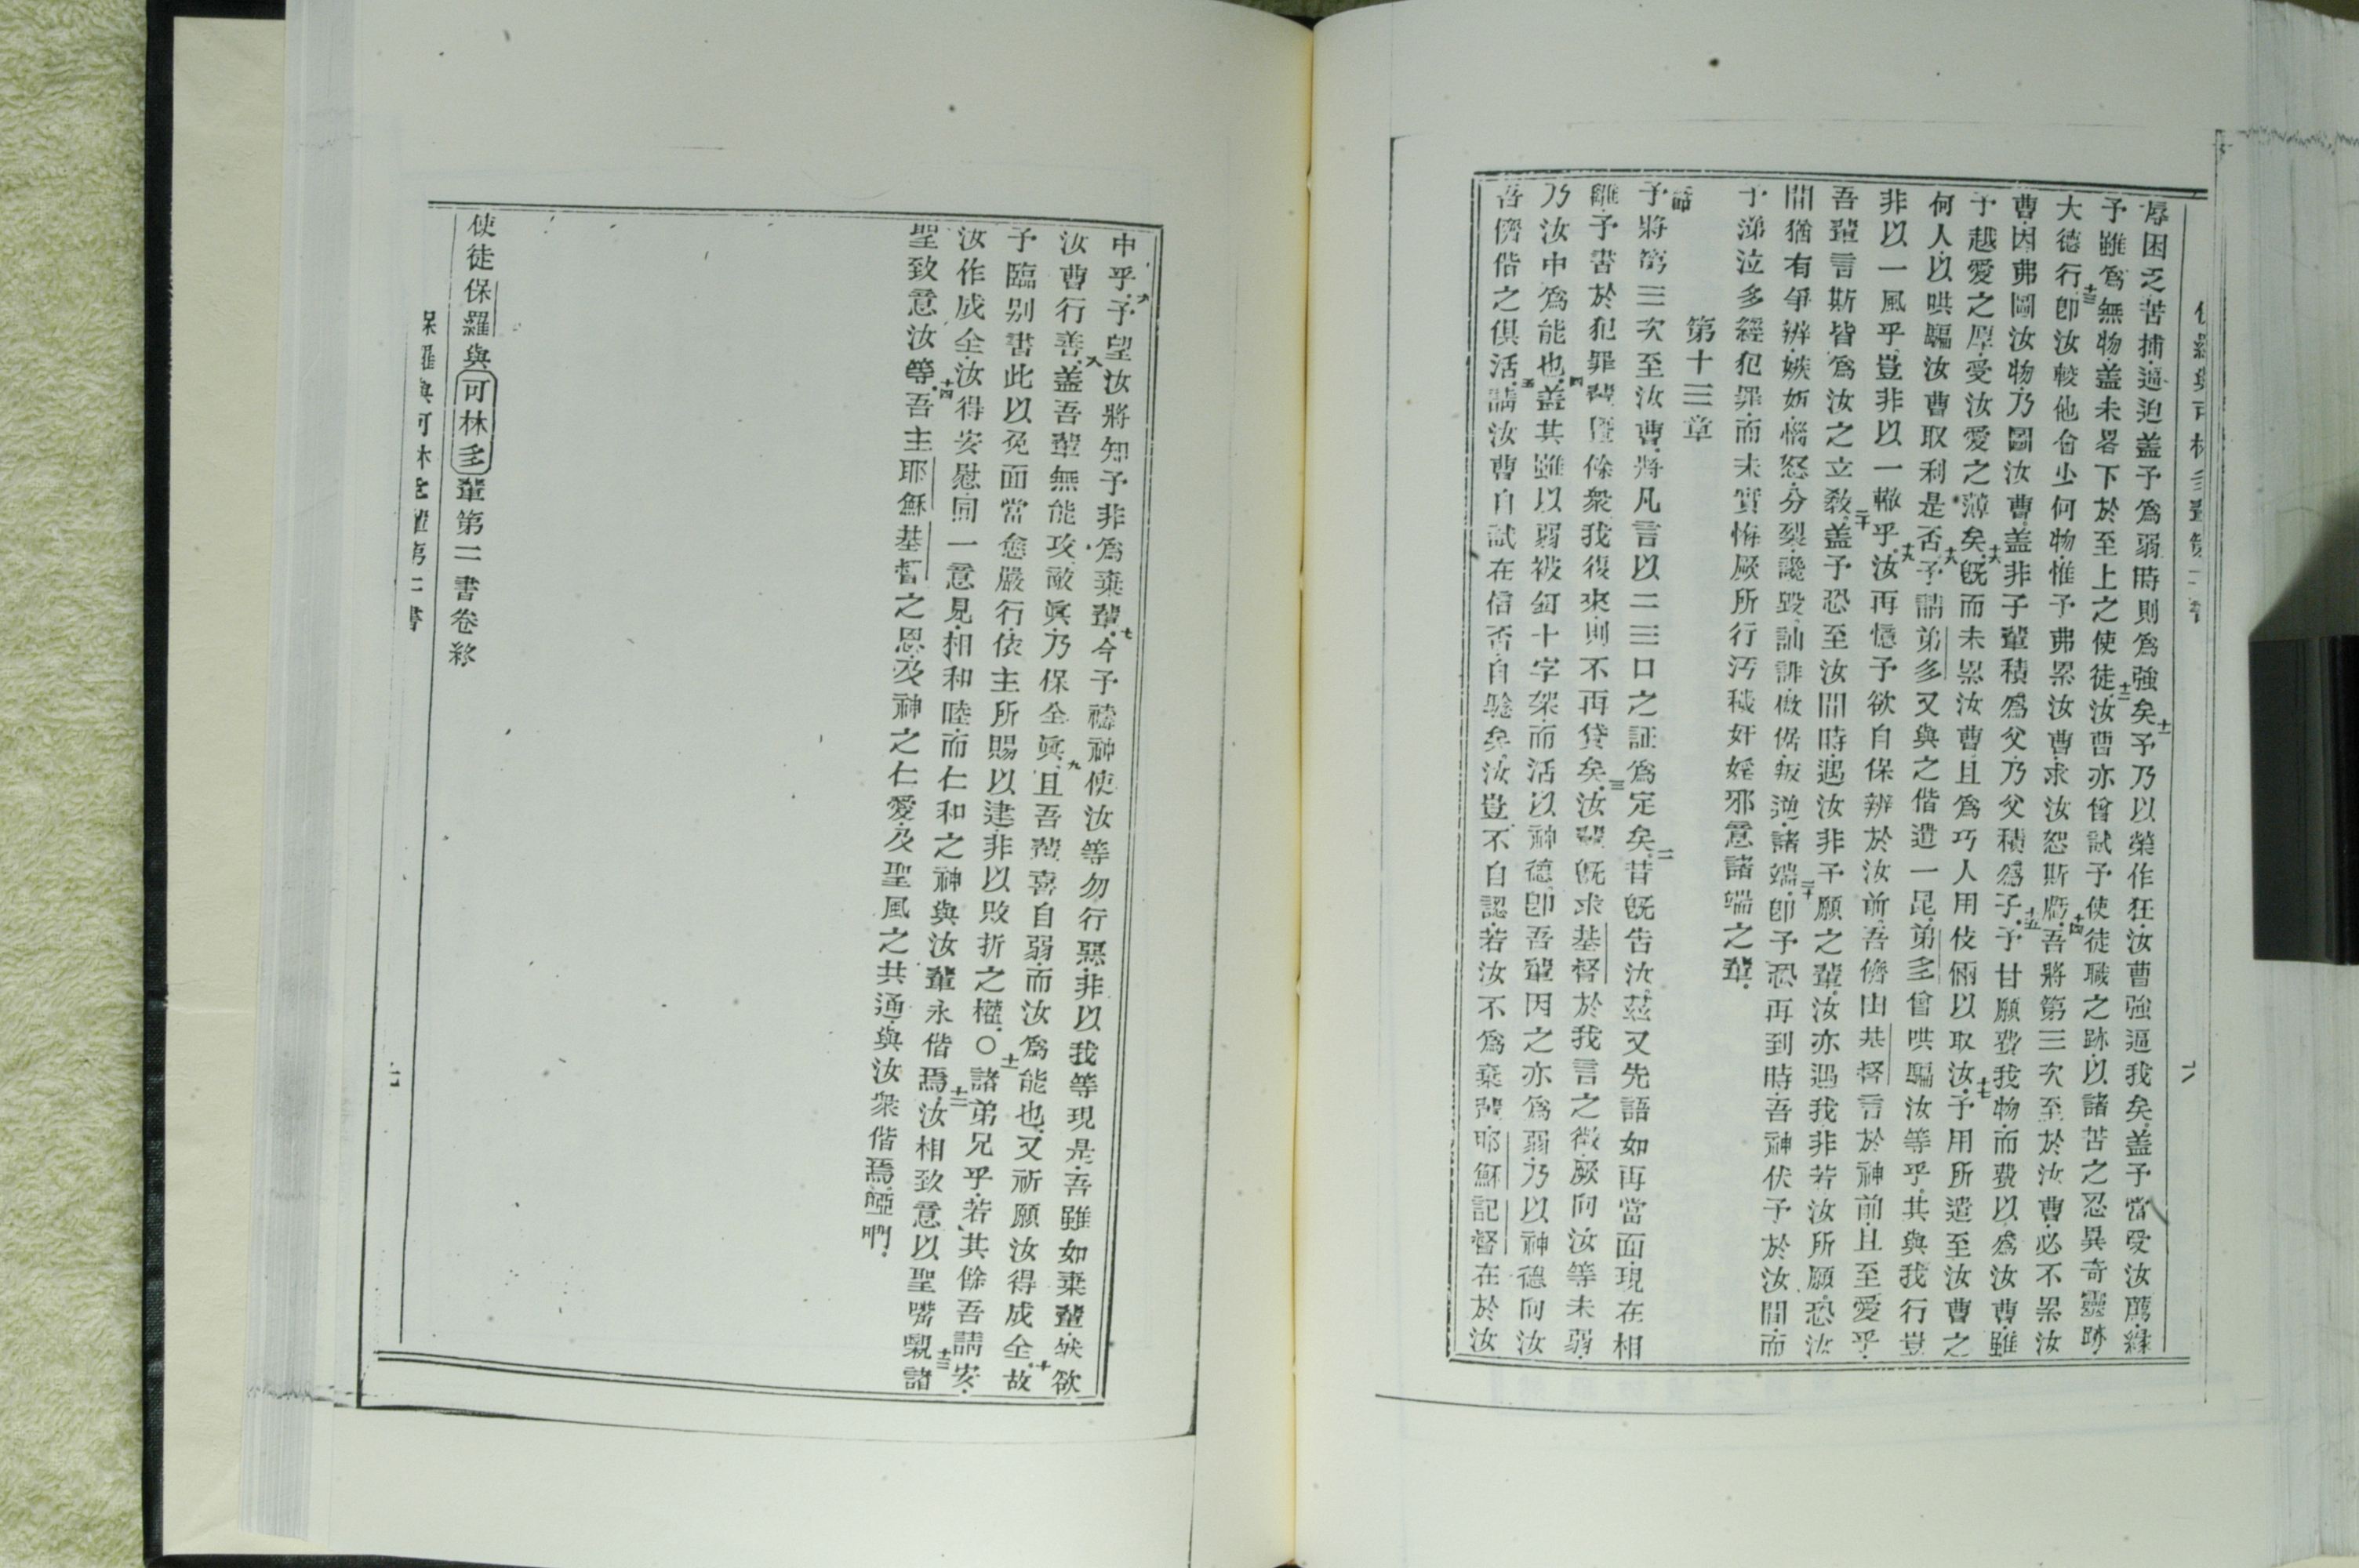 辱困乏苦捕逼迫盖予爲弱時則爲強矣十一予乃以榮作狂汝曹強逼我矣盖予當受汝薦緣
予雖爲無物盖未畧下於至上之使徒十二汝曹亦曾試予使徒職之跡以諸苦之忍異奇靈跡
大德行十三卽汝較他會少何物惟予弗累汝曹求汝恕斯虧十四吾將第三次至於汝曹必不累汝
曹因弗圖汝物乃圖汝曹盖非子輩積爲父乃父積爲子十五予甘願費我物而費以爲汝曹雖
予越愛之厚受汝愛之薄矣十六旣而未累汝曹且爲巧人用伎倆以取汝十七予用所遣至汝曹之
何人以哄騙汝曹取利是否十八予請弟多又與之偕遣一昆弟多曾哄騙汝等乎其與我行豈
非以一風乎豈非以一轍乎十九汝再憶予欲自保辨於汝前吾儕由基督言於神前且至愛乎
吾輩言斯皆爲汝之立教二十盖予恐至汝間時遇汝非予願之輩汝亦遇我非若汝所願恐汝
間猶有爭辨嫉妬惱怒分裂讒毀訕誹傲倨叛逆諸端二十一卽予恐再到時吾神伏予於汝間而
予涕泣多經犯罪而未實悔厥所行汚穢奸婬邪意諸端之輩
第十三章
一節予將第三次至汝曹將凡言以二三口之証爲定矣二昔旣告汝茲又先語如再當面現在相
離予書於犯罪輩曁餘衆我復來則不再貸矣三汝輩旣求基督於我言之徵厥向汝等未弱
乃汝中爲能也四盖其雖以弱被釘十字架而活以神德卽吾輩因之亦爲弱乃以神德向汝
吾儕偕之俱活五請汝曹自試在信否自騐矣汝豈不自認若汝不爲棄輩耶穌記督在於汝
中乎六予望汝將知予非爲棄輩七今予禱神使汝等勿行惡非以我等現是吾雖如棄輩然欲
汝曹行善八盖吾輩無能攻敵眞乃保全眞九且吾輩喜自弱而汝爲能也又祈願汝得成全十故
予臨别書此以免面當愈嚴行依主所賜以建非以敗折之權〇十一諸弟兄乎若其餘吾請安
汝作成全汝得安慰同一意見相和睦而仁和之神與汝輩永偕焉十二汝相致意以聖嘴親十三諸
聖致意汝等十四吾主耶穌基督之恩及神之仁愛及聖風之共通與汝衆偕焉啞唎
使徒保羅與可林多輩第二書卷終
保羅與可林多輩第二書
七